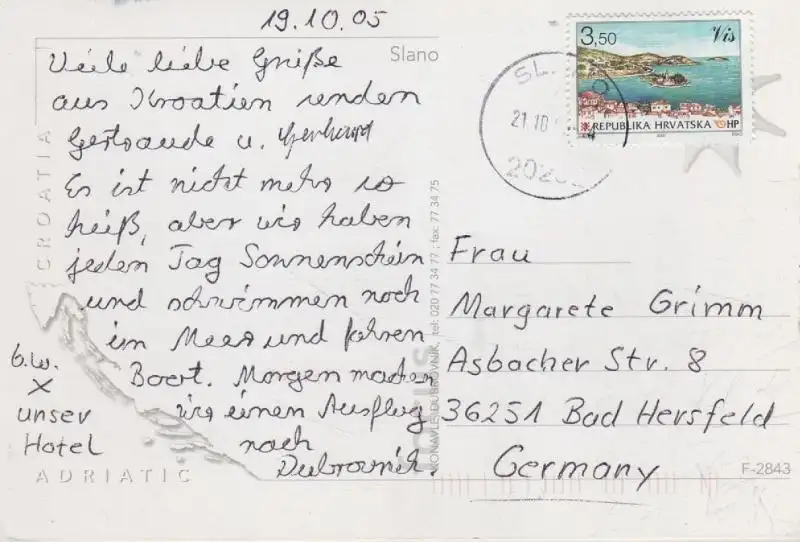 19.10.05
Slano
Viele liebe Grüße
aus Kroatien senden
Gertraude u. Gerhard
Es ist nicht mehr so
heiß, aber wir haben
jeden Tag Sonnenschein
und schwimmen noch
im Meer und fahren
Boot. Morgen machen
wir einen Ausflug
nach
Dubrovnik.
b.w.
X
unser
Hotel
CROATIA
ADRIATIC
KONAVLE-DUBROVNIK, tel: 020 77 34 77; fax: 77 34 75
3,50
Vis
REPUBLIKA HRVATSKA HP
21.10
Frau
Margarete Grimm
Asbacher Str. 8
36251 Bad Hersfeld
Germany
F-2843